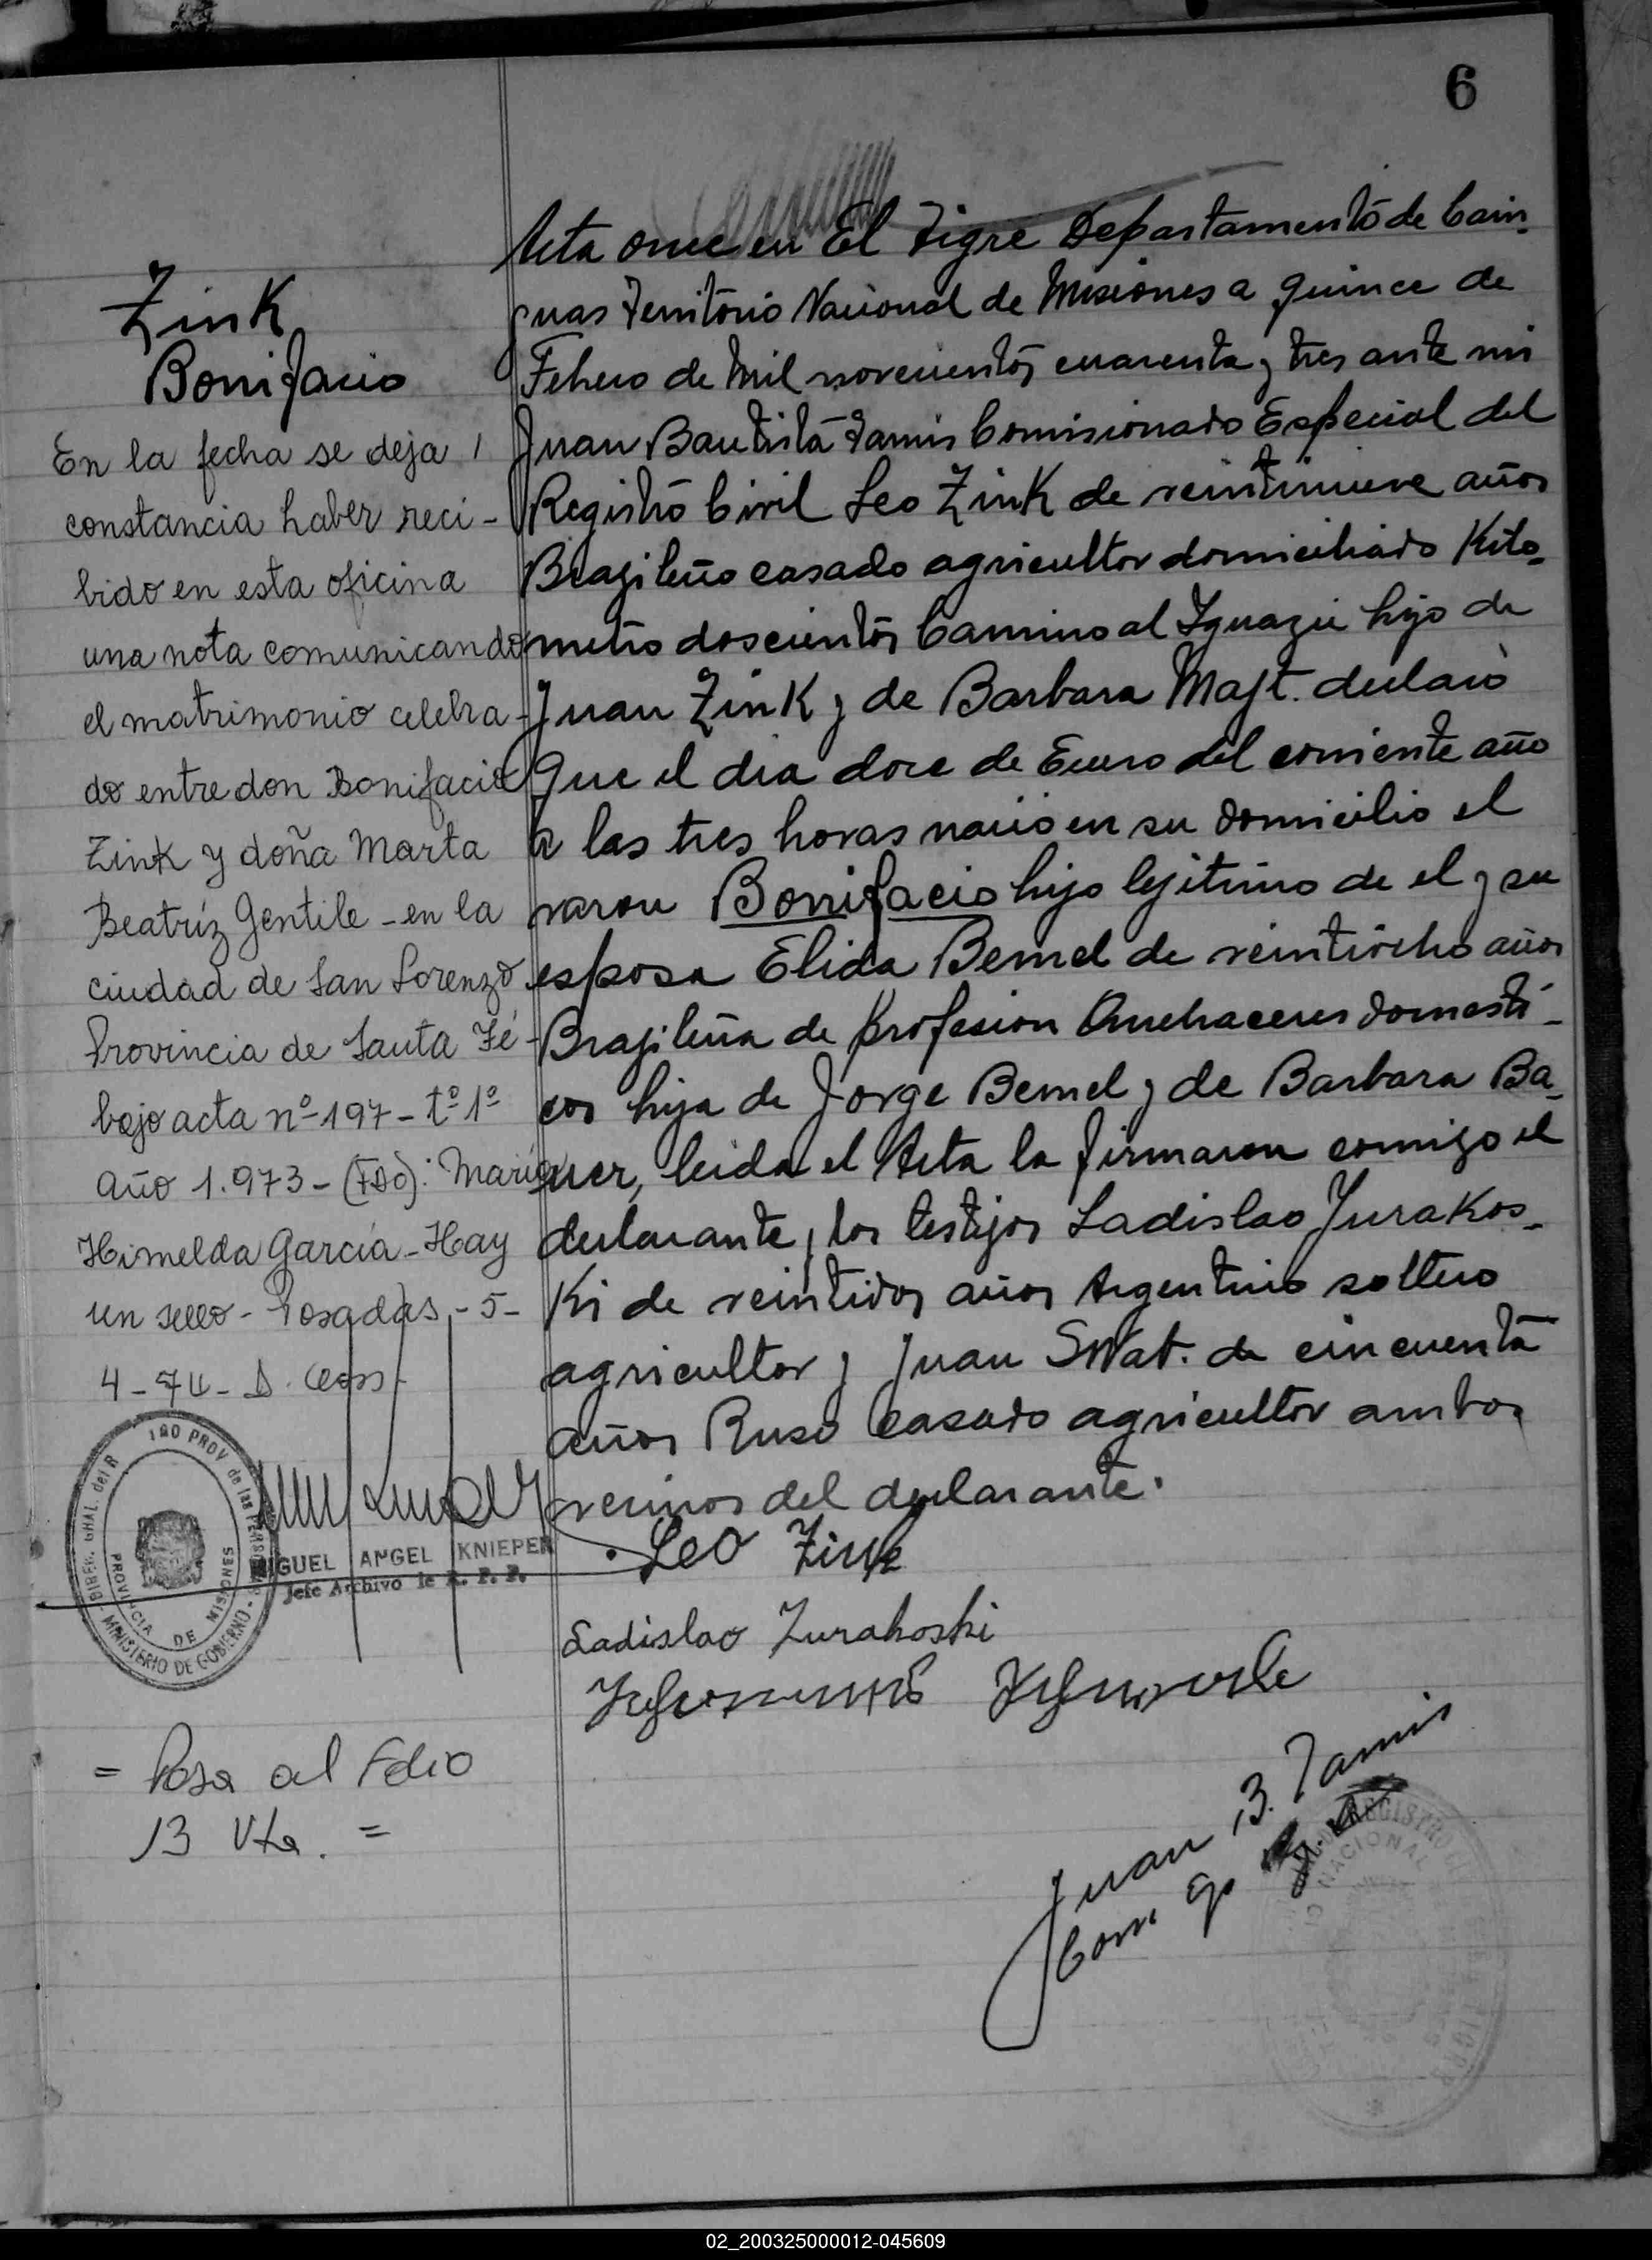 6
Zink
Bonifacio
En la fecha se deja
constancia haber reci-
bido en esta oficina
una nota comunicando
el matrimonio celebra-
do entre don Bonifacio
Zink y doña Marta
Beatríz Gentile - en la
ciudad de San Lorenzo
Provincia de Santa Fé -
bajo acta nº 197 - tº 1º
Año 1.973 - (FDO): María
Himelda García - Hay
un sello - Posadas - 5 -
4 - 74 - D.
DIREC. GRAL. del R PROV de las PERSONAS
MINISTERIO DE GOBIERNO
PROVINCIA DE MISIONES
MIGUEL ANGEL KNIEPER
Jefe Archivo de R. P. P.
= Pasa al Folio
13 Vta. =
Acta once en El Tigre Departamento de Cain-
guas Territorio Nacional de Misiones a quince de
Febrero de Mil novecientos cuarenta y tres ante mi
Juan Bautista Tamis Comisionado Especial del
Registro Civil Leo Zink de veintinueve años
Brazileño casado agricultor domiciliado Kilo-
metro doscientos Camino al Iguazú hijo de
Juan Zink y de Barbara Majt. declaró
Que el dia doce de Enero del corriente año
a las tres horas nació en su domicilio el
varon Bonifacio hijo lejitimo de el y su
esposa Elida Bemel de veintiocho años
Brazileña de profesion Quehaceres domesti-
cos hija de Jorge Bemel y de Barbara Ba-
uer, leida el Acta la firmaron conmigo el
declarante y los testijos Ladislao Jurakos-
Ki de veintidos años Argentino soltero
agricultor y Juan SWat. de cincuenta
años Ruso Casado agricultor ambos
vecinos del declarante.
Leo Zink
Ladislao Zurakoski
Juan B. Tamis
Com.
REGISTRO
NACIONAL
02_200325000012-045609